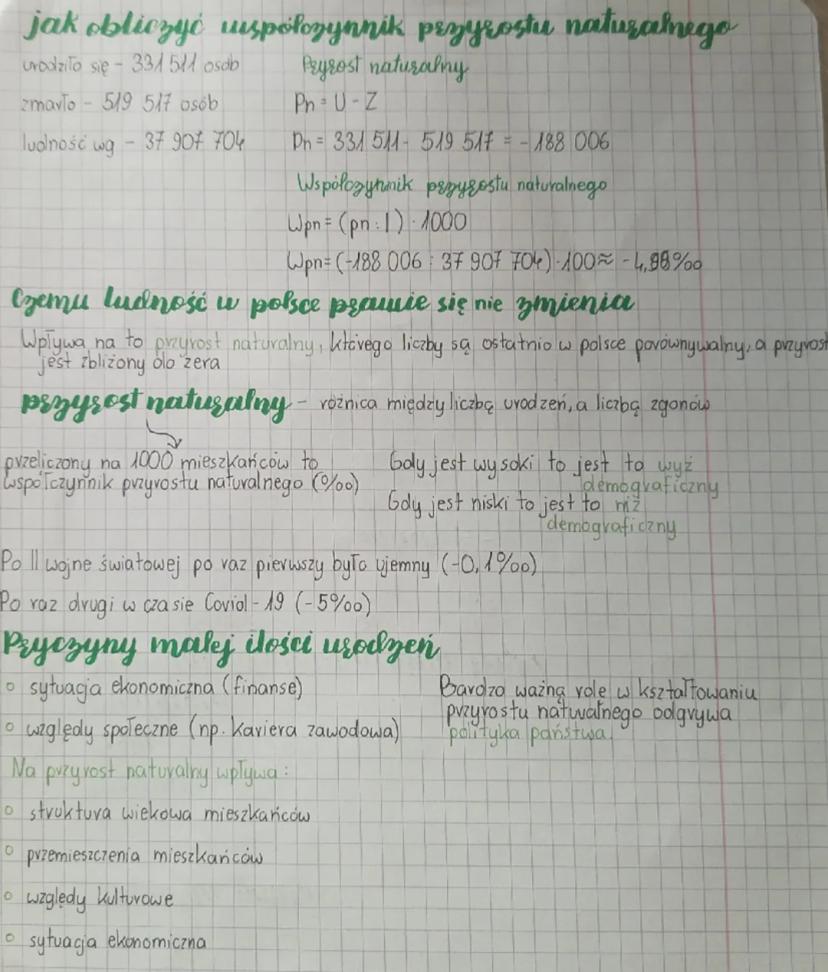 jak obliczyć współczynnik przyrostu naturalnego
urodziło się - 331 511 osób
zmarło - 519 517 osób
ludność wg - 37 907 704
Przyrost naturalny
Pn = U - Z
Pn = 331 511 - 519 517 = - 188 006
Współczynnik przyrostu naturalnego
Wpn = (pn : l) · 1000
Wpn = (-188 006 : 37 907 704) · 100 ≈ - 4,98‰
Czemu ludność w polsce prawie się nie zmienia
Wpływa na to przyrost naturalny, którego liczby są ostatnio w polsce porównywalny, a przyrost
jest zbliżony do zera
przyrost naturalny - różnica między liczbą urodzeń, a liczbą zgonów
przeliczony na 1000 mieszkańców to
współczynnik przyrostu naturalnego (‰)
Gdy jest wysoki to jest to wyż
demograficzny
Gdy jest niski to jest to niż
demograficzny
Po II wojne światowej po raz pierwszy było ujemny (-0,1‰)
Po raz drugi w czasie Covid - 19 (-5‰)
Przyczyny małej ilości urodzeń
o sytuacja ekonomiczna (finanse)
o względy społeczne (np. kariera zawodowa)
Bardzo ważną role w kształtowaniu
przyrostu naturalnego odgrywa
polityka państwa
Na przyrost naturalny wpływa:
o struktura wiekowa mieszkańców
o przemieszczenia mieszkańców
o względy kulturowe
o sytuacja ekonomiczna